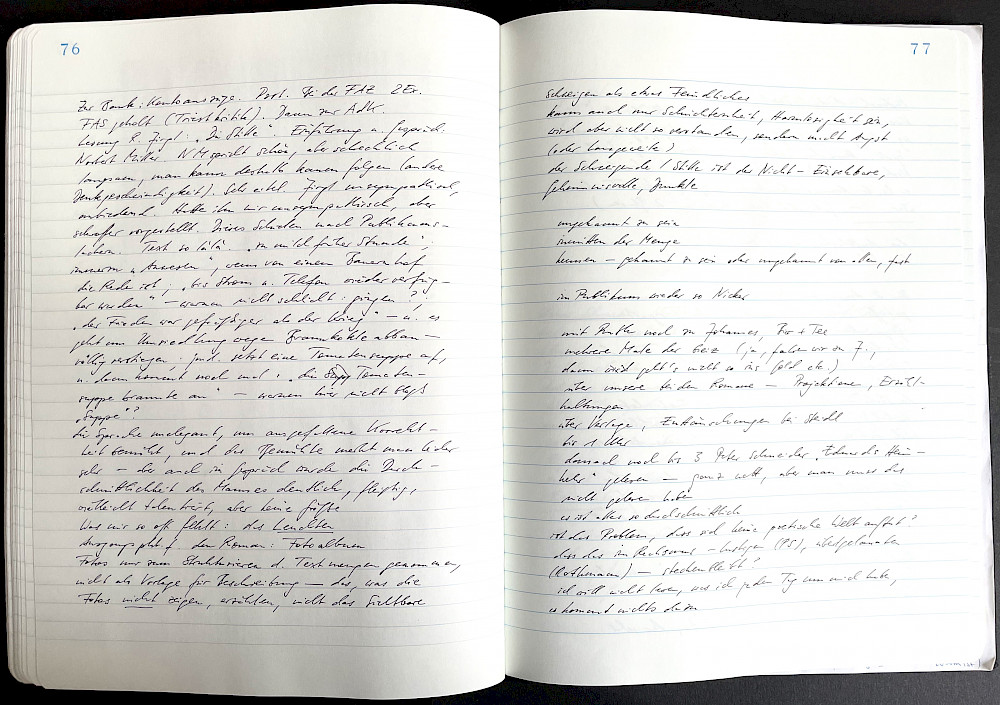 76
Zur Bank: Kontoauszüge. Dort. bei der FAZ 2 Ex.
FAS geholt (Triestkritik). Dann zur AdK.
Lesung R. Jirgl: „Die Stille“ Einführung u. Gespräch
Norbert Miller. NM spricht schön, aber schrecklich
langsam, man kann deshalb kaum folgen (andere
Denkgeschwindigkeit). Sehr eitel. Jirgl unsympathisch,
anbiedernd. Hatte ihn mir unsympathisch, aber
schärfer vorgestellt. Dieses Schielen nach Publikums-
lachern. Text so lala „in noch früher Stunde“,
immerzu „Anwesen“, wenn von einem Bauernhof
die Rede ist, „bis Strom u. Telefon wieder verfüg-
bar wurden“ – warum nicht schlicht: gingen?
„der Frieden war gefräßiger als der Krieg“ – u. es
geht um Umsiedlung wegen Braunkohleabbau –
völlig verstiegen. jmd. setzt eine Tomatensuppe auf,
u. dann kommt noch mal: „die Tomaten-
suppe brannte an“ – warum hier nicht bloß
„Suppe“?
die Sprache unelegant, um ausgefallene Wort
bemüht, und das Bemühte merkt man leider
sehr – auch im Gespräch wurde die Durch-
schnittlichkeit des Mannes deutlich, fleißig,
vielleicht talentiert, aber keine Größe
Was mir so oft fehlt: das Leuchten
Ausgangspkt. f. den Roman: Fotoalbum
Fotos nur zum Strukturieren d. Textmengen genommen,
nicht als Vorlage für Beschreibung – das, was die
Fotos nicht zeigen, erzählen, nicht das Sichtbare
77
Schweigen als etwas Feindliches
kann auch nur Schüchternheit, Harmlosigkeit sein,
wird aber nicht so verstanden, sondern macht Angst
(oder Langeweile)
der Schweigende / Stille ist der Nicht-Einsehbare,
Geheimnisvolle, Dunkle
ungekannt zu sein
inmitten der Menge
kennen – gekannt zu sein oder ungekannt von allen, fast
im Publikum wieder so Nicker
mit noch zu Johannes, Brot + Tee
mehrere Male der Geiz (ja, haben wir zu 7.,
dann geht's nicht so ins Geld etc.)
über unsere beiden Romane – Projektionen, Erzähl-
haltungen
über Verlage, Enttäuschungen bei Steidl
bis 1 Uhr
danach noch bis 3 Peter Schneider „Eduards Heim-
kehr“ gelesen – ganz nett, aber man muss das
nicht gelesen haben
es ist alles so durchschnittlich
ist das Problem, dass sich keine poetische Welt auftut?
dass das im – Lustigen (PS),
(Rothmann) – steckenbleibt?
ich will nicht lesen, was ich jeden Tag um mich habe,
es kommt nichts dazu